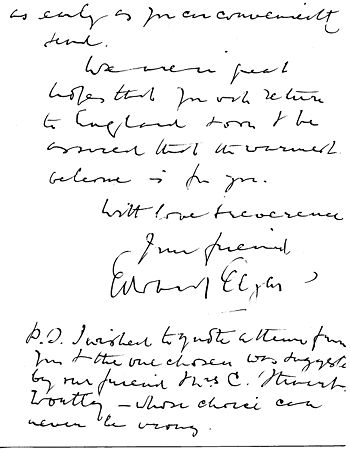 as early as you can conveniently
send.
We are in great
hopes that you will return
to England soon & be
assured that the warmest
welcome is for you.
With love & reverence
Your friend
Edward Elgar
P.S. I wished to quote a theme from
you & the one chosen was suggested
by our friend Mrs C. Stuart-
Wortley – whose choice can
never be wrong.